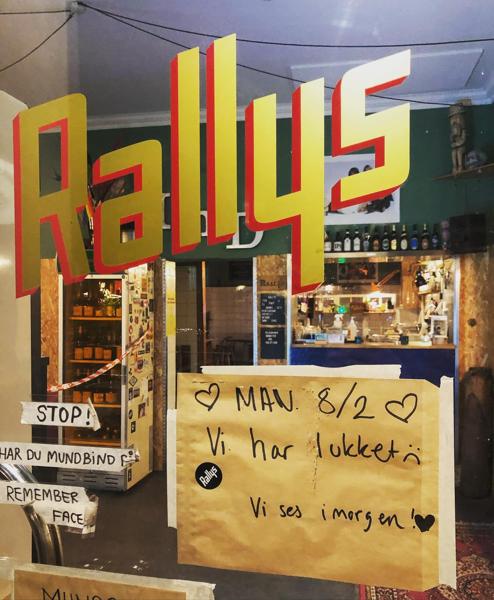 Rallys
STOP!
HAR DU MUNDBIND
REMEMBER
FACE
♡ MAN. 8/2 ♡
Vi har lukket :(
Rallys
Vi ses imorgen! ♥